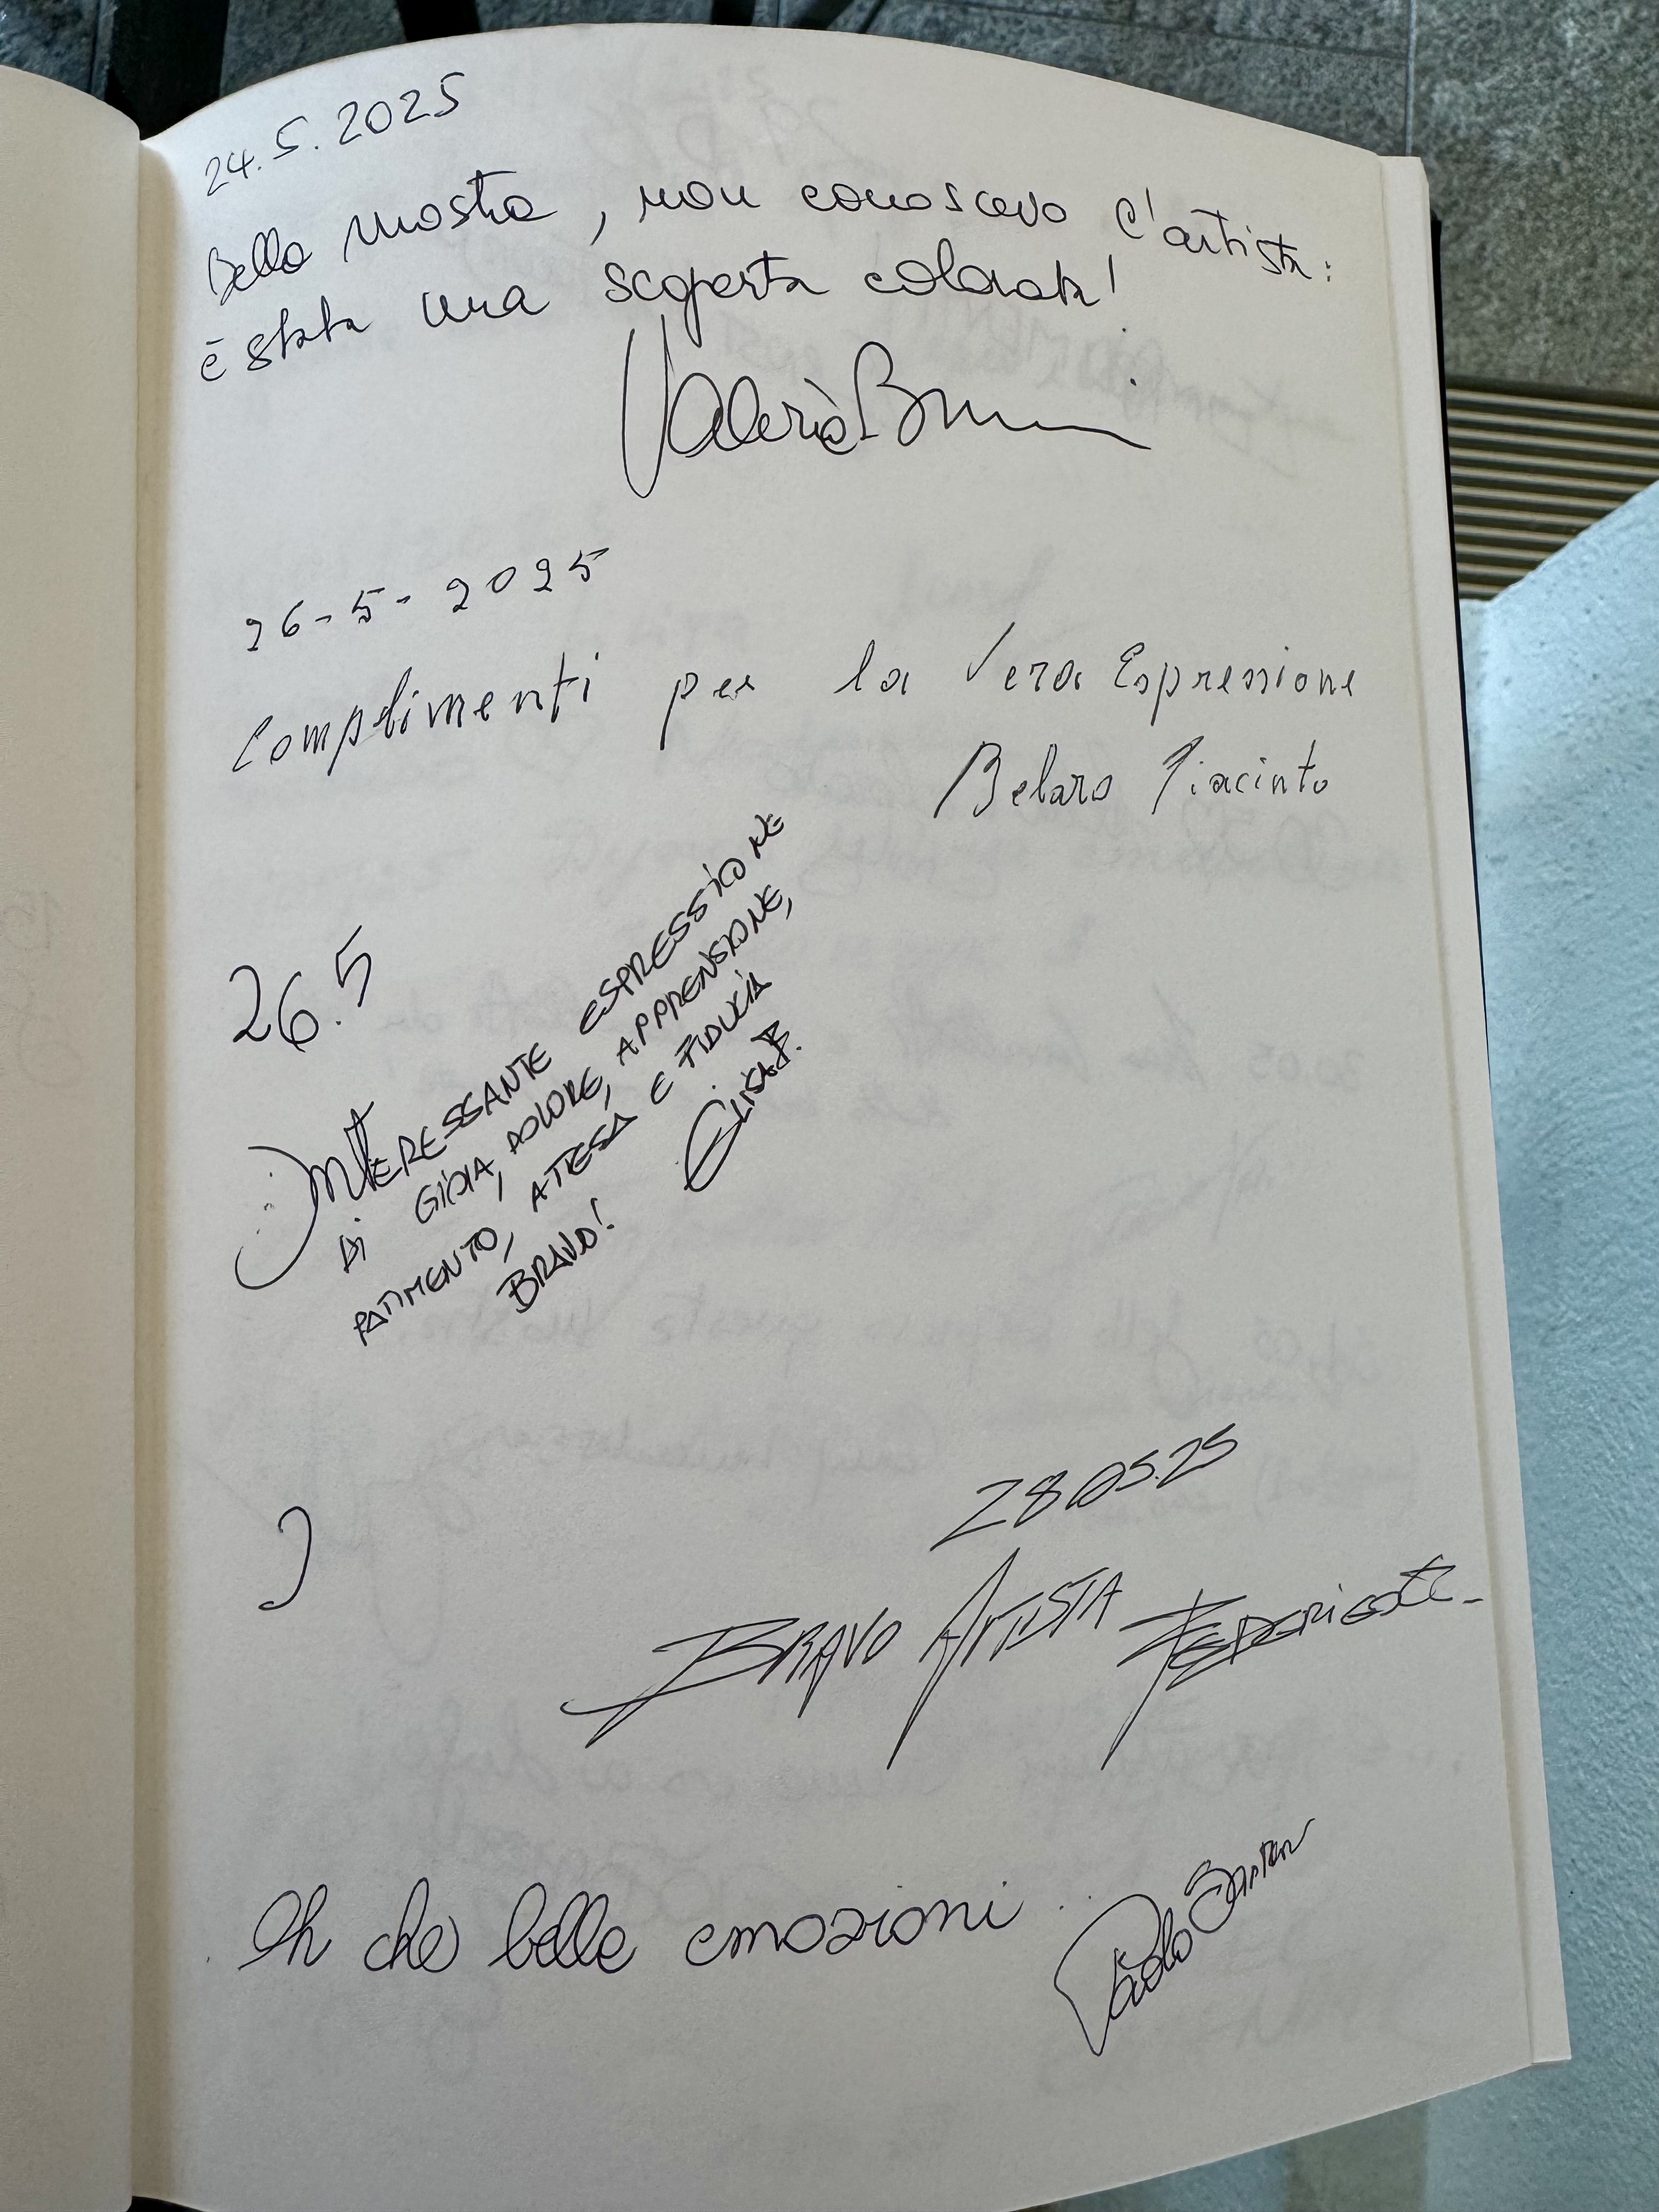 24.5.2025
Bella mostra, non conoscevo l'artista:
è stata una scoperta colorata!
Valeria
26-5-2025
Complimenti per la Vera Espressione
Belaro Giacinto
26.5
INTERESSANTE ESPRESSIONE
DI GIOIA, DOLORE, APPRENSIONE,
PATIMENTO, ATTESA E FIDUCIA
BRAVO! ELISA B.
28.05.25
BRAVO ARTISTA
Oh che belle emozioni
Paolo